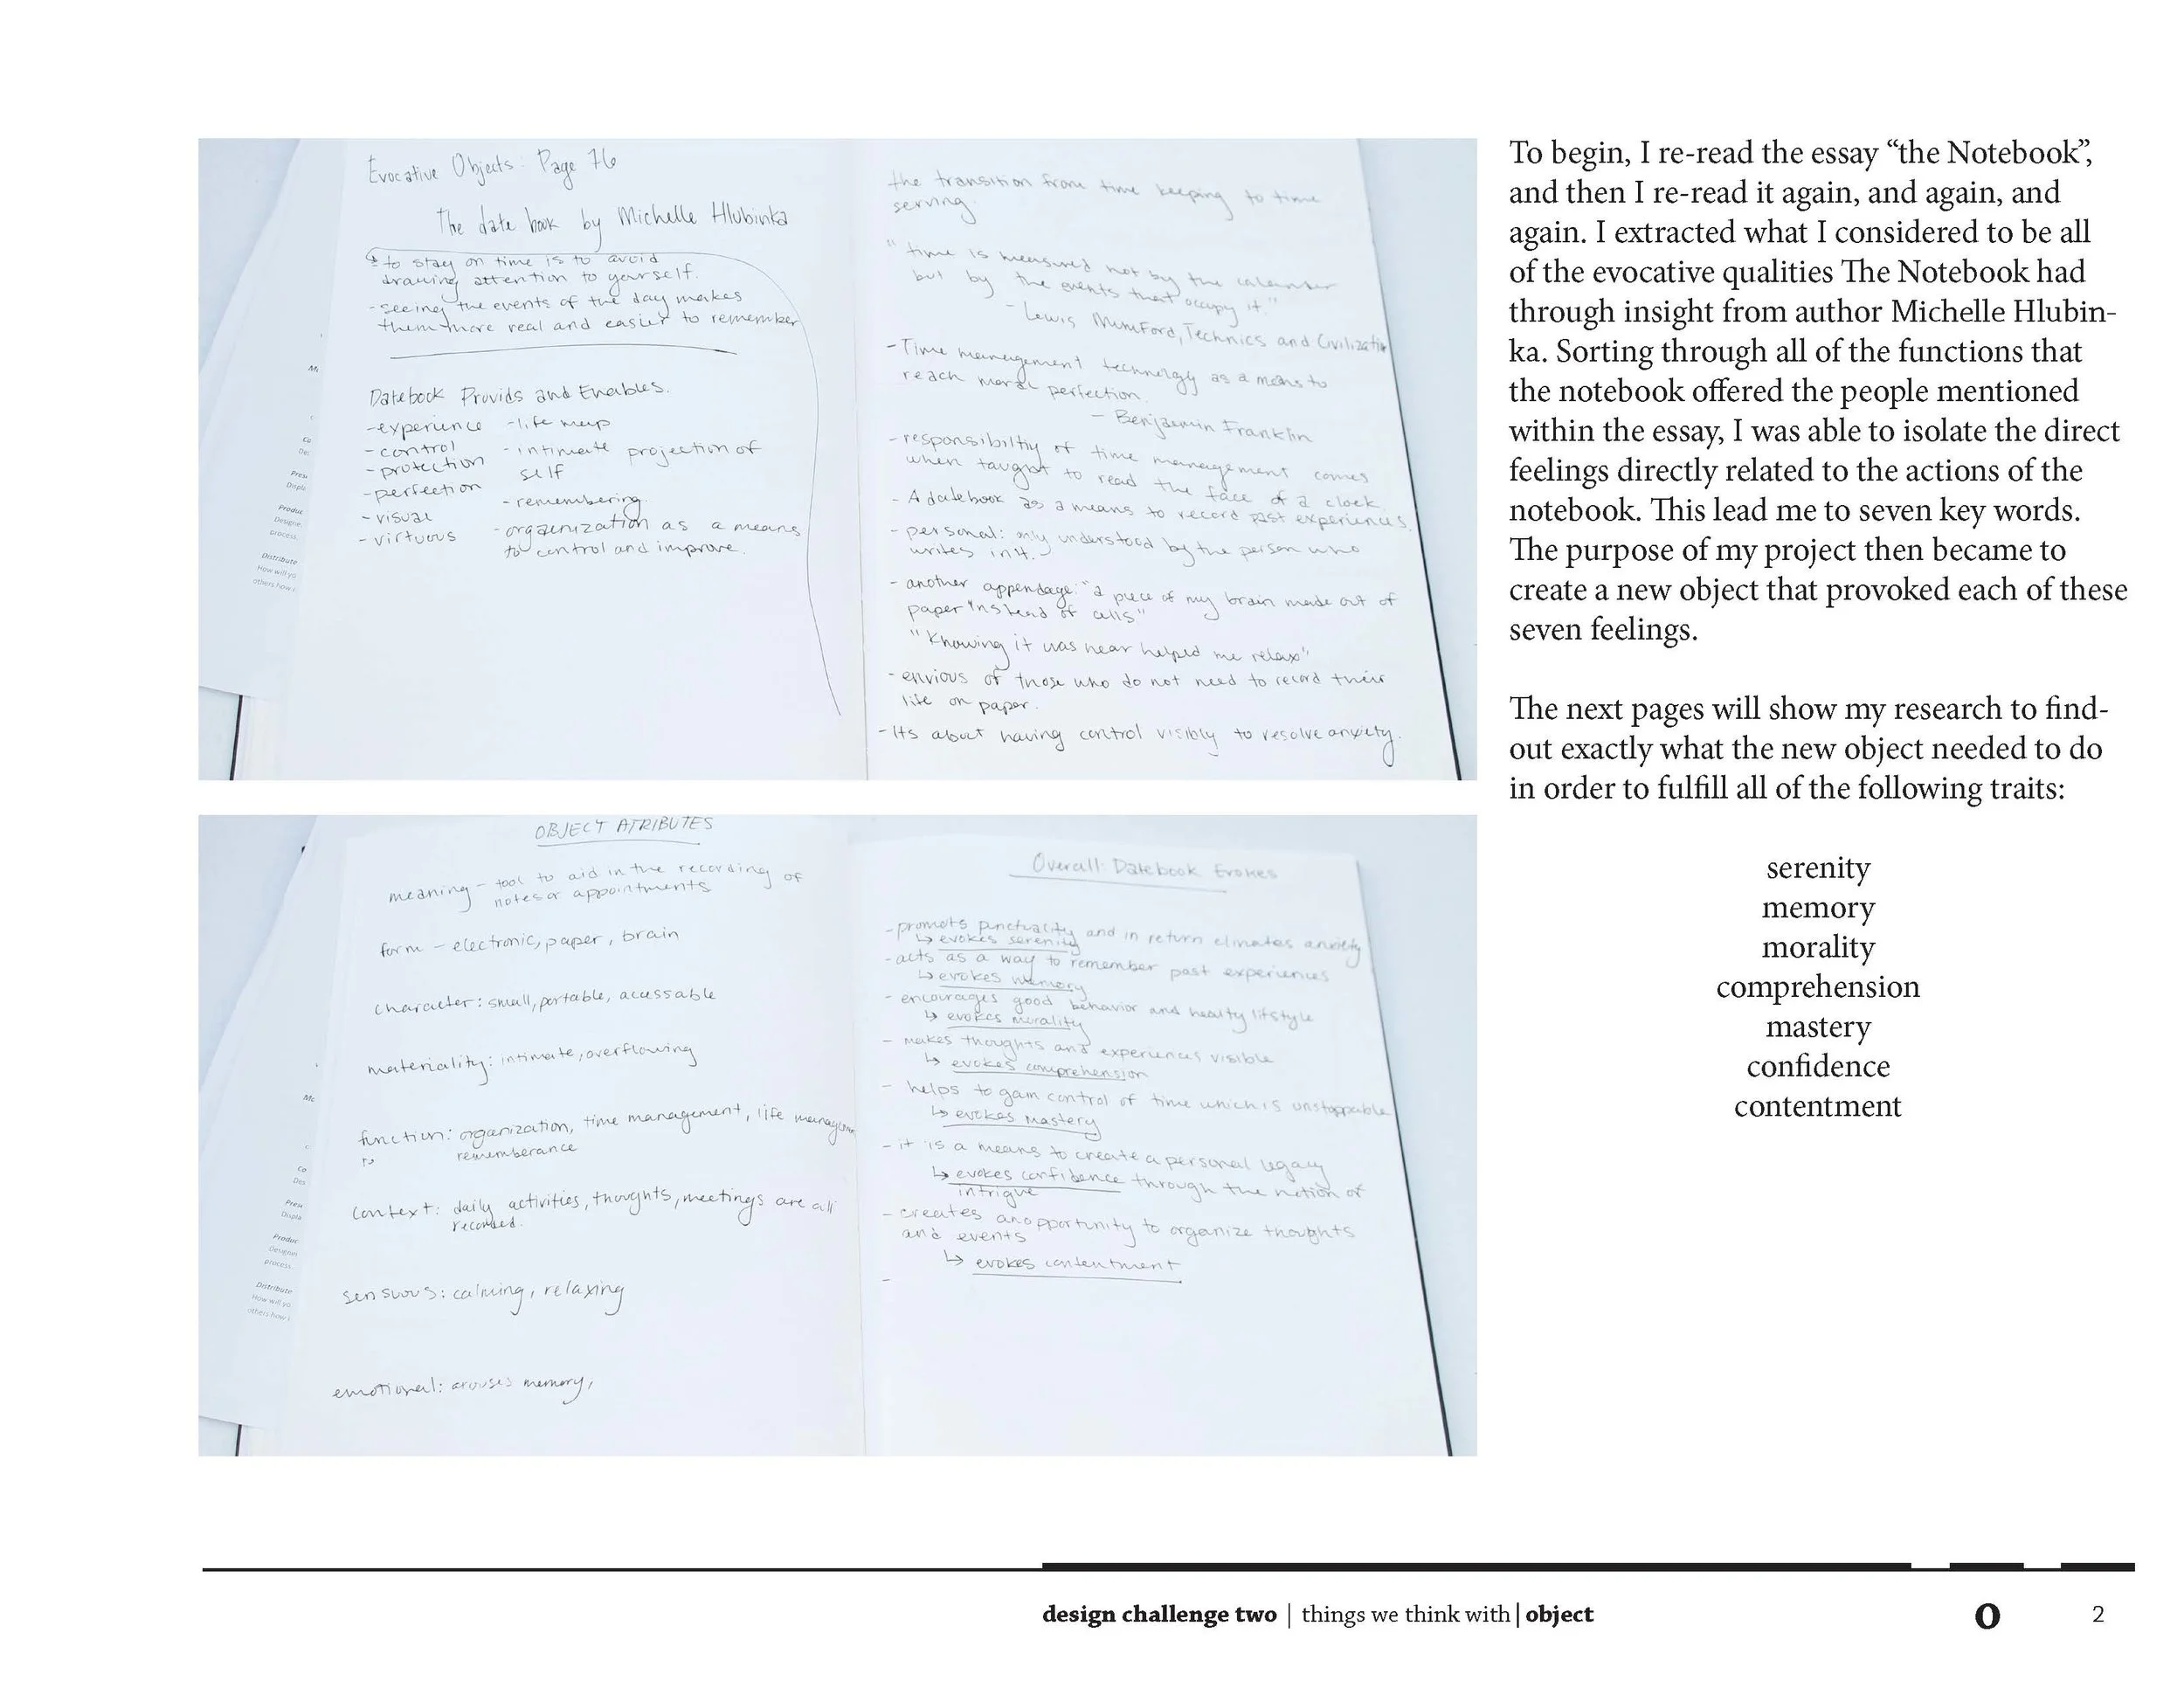 Evocative Objects: Page 76
The date book by Michelle Hlubinka
to stay on time is to avoid
drawing attention to yourself.
-seeing the events of the day makes
them more real and easier to remember
Datebook Provids and Enables.
-experience -life map
-control - intimate projection of
-protection self
-perfection - remembering
-visual - organization as a means
-virtuous to control and improve.
the transition from time keeping to time
serving
"time is measured not by the calander
but by the events that occupy it."
- Lewis Mumford, Technics and Civilization
-Time management technology as a means to
reach moral perfection.
- Benjamin Franklin
-responsibiltiy of time management comes
when taught to read the face of a clock.
- A datebook as a means to record past experiences.
- personal: only understood by the person who
writes in it.
- another appendage: "a piece of my brain made out of
paper instead of cells"
"Knowing it was near helped me relax"
- envious of those who do not need to record their
life on paper.
-Its about having control visibly to resolve anxiety.
OBJECT ATRIBUTES
meaning - tool to aid in the recording of
notes or appointments
form - electronic, paper, brain
character: small, portable, acessable
materiality: intimate, overflowing
function: organization, time management, life
rememberance
context: daily activities, thoughts, meetings are all
recorded.
sensuous: calming, relaxing
emotional: arouses memory,
Overall: Datebook Evokes
-promots punctuality and in return elimates anxiety
↳ evokes serenity
-acts as a way to remember past experiences
↳ evokes memory
- encourages good behavior and healty lifstyle
↳ evokes morality
- makes thoughts and experiences visible
↳ evokes comprehension
- helps to gain control of time which is unstoppable
↳ evokes mastery
- it is a means to create a personal legacy
↳ evokes confidence through the notion of
intrigue
- creates an opportunity to organize thoughts
and events
↳ evokes contentment
To begin, I re-read the essay “the Notebook”,
and then I re-read it again, and again, and
again. I extracted what I considered to be all
of the evocative qualities The Notebook had
through insight from author Michelle Hlubin-
ka. Sorting through all of the functions that
the notebook offered the people mentioned
within the essay, I was able to isolate the direct
feelings directly related to the actions of the
notebook. This lead me to seven key words.
The purpose of my project then became to
create a new object that provoked each of these
seven feelings.
The next pages will show my research to find-
out exactly what the new object needed to do
in order to fulfill all of the following traits:
serenity
memory
morality
comprehension
mastery
confidence
contentment
design challenge two | things we think with | object
O 2